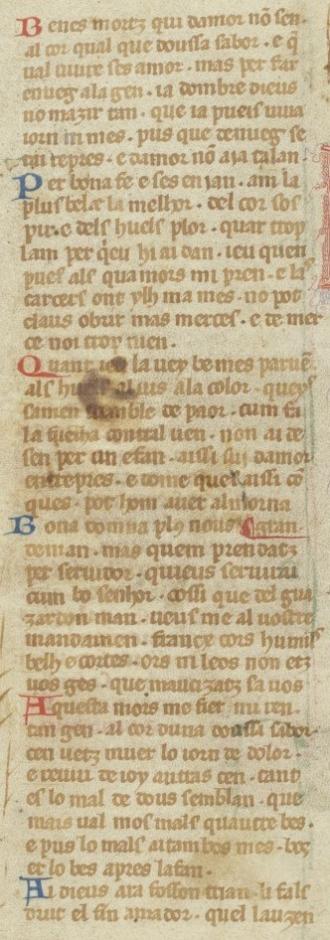 Benes mortz qui damor nō sen.
al cor qual que doussa sabor. e q̄
ual uiure ses amor. mas per far
enueg ala gen. ia dombre dieus
no mazir tan. que ia pueis uiua
iorn ni mes. pus que denueg se
rai repres. e damor nō aia talan.
Per bona fe e ses enian. am la
plus bela e la melhor. del cor sos
pir. e dels huels plor. quar trop
lam per q̄eu hi ai dan. ieu quen
puesc als quamors mi pren. e las
carcers ont ylh ma mes. no pot
claus obrir mas merces. e de mer
ce noi trop nien.
Quant ieu la uey be mes paruē.
als huels al uis ala color. queys
samen tremble de paor. cum fa
la fuelha contral uen. non ai de
sen per un efan. aissi sui damor
entrepres. e dome quel aissi cō
ques. pot hom auer almorna gran.
Bona domna plus nous
deman. mas quem prendatz
per seruidor. quieus seruirai
cum bo senhor. cossi que del gua
zardon man. ueus me al uostre
mandamen. franx cors humils
belh e cortes. ors ni leos non etz
uos ges. que maucizatz sa uos
Aquesta mors me fier mi ren.
tan gen. al cor duna doussa sabor.
cen uetz muer lo iorn de dolor.
e reuiu de ioy autras cen. tant
es lo mal de dous semblan. que
mais ual mos mals quautre bes.
e pus lo mals aitan bos mes. bos
er lo bes apres lafan.
Ai dieus ara fosson trian. li fals
drut el fin amador. quel lauzen